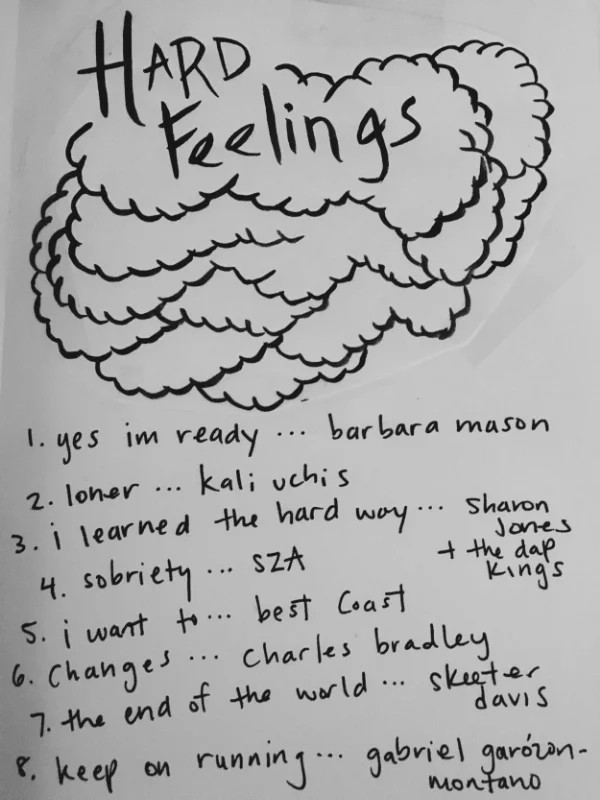 HARD
Feelings
1. yes im ready ... barbara mason
2. loner ... kali uchis
3. i learned the hard way ... Sharon
Jones
+ the dap
kings
4. sobriety ... SZA
5. i want to ... best Coast
6. Changes ... Charles bradley
7. the end of the world ... skeeter
davis
8. keep on running ... gabriel garózon-
montano